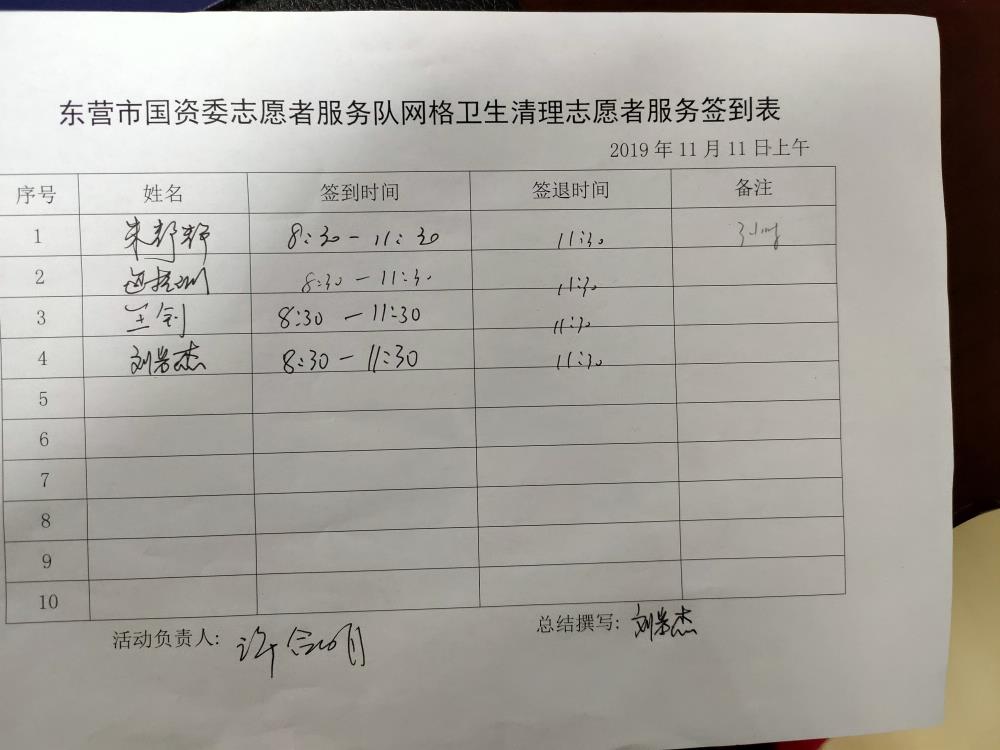 东营市国资委志愿者服务队网格卫生清理志愿者服务签到表
2019年11月11日上午
序号 姓名 签到时间 签退时间 备注
1 8:30-11:30 11:30
2 8:30-11:30 11:30
3 王钊 8:30-11:30 11:30
4 刘岩杰 8:30-11:30 11:30
5
6
7
8
9
10
活动负责人: 总结撰写: 刘岩杰